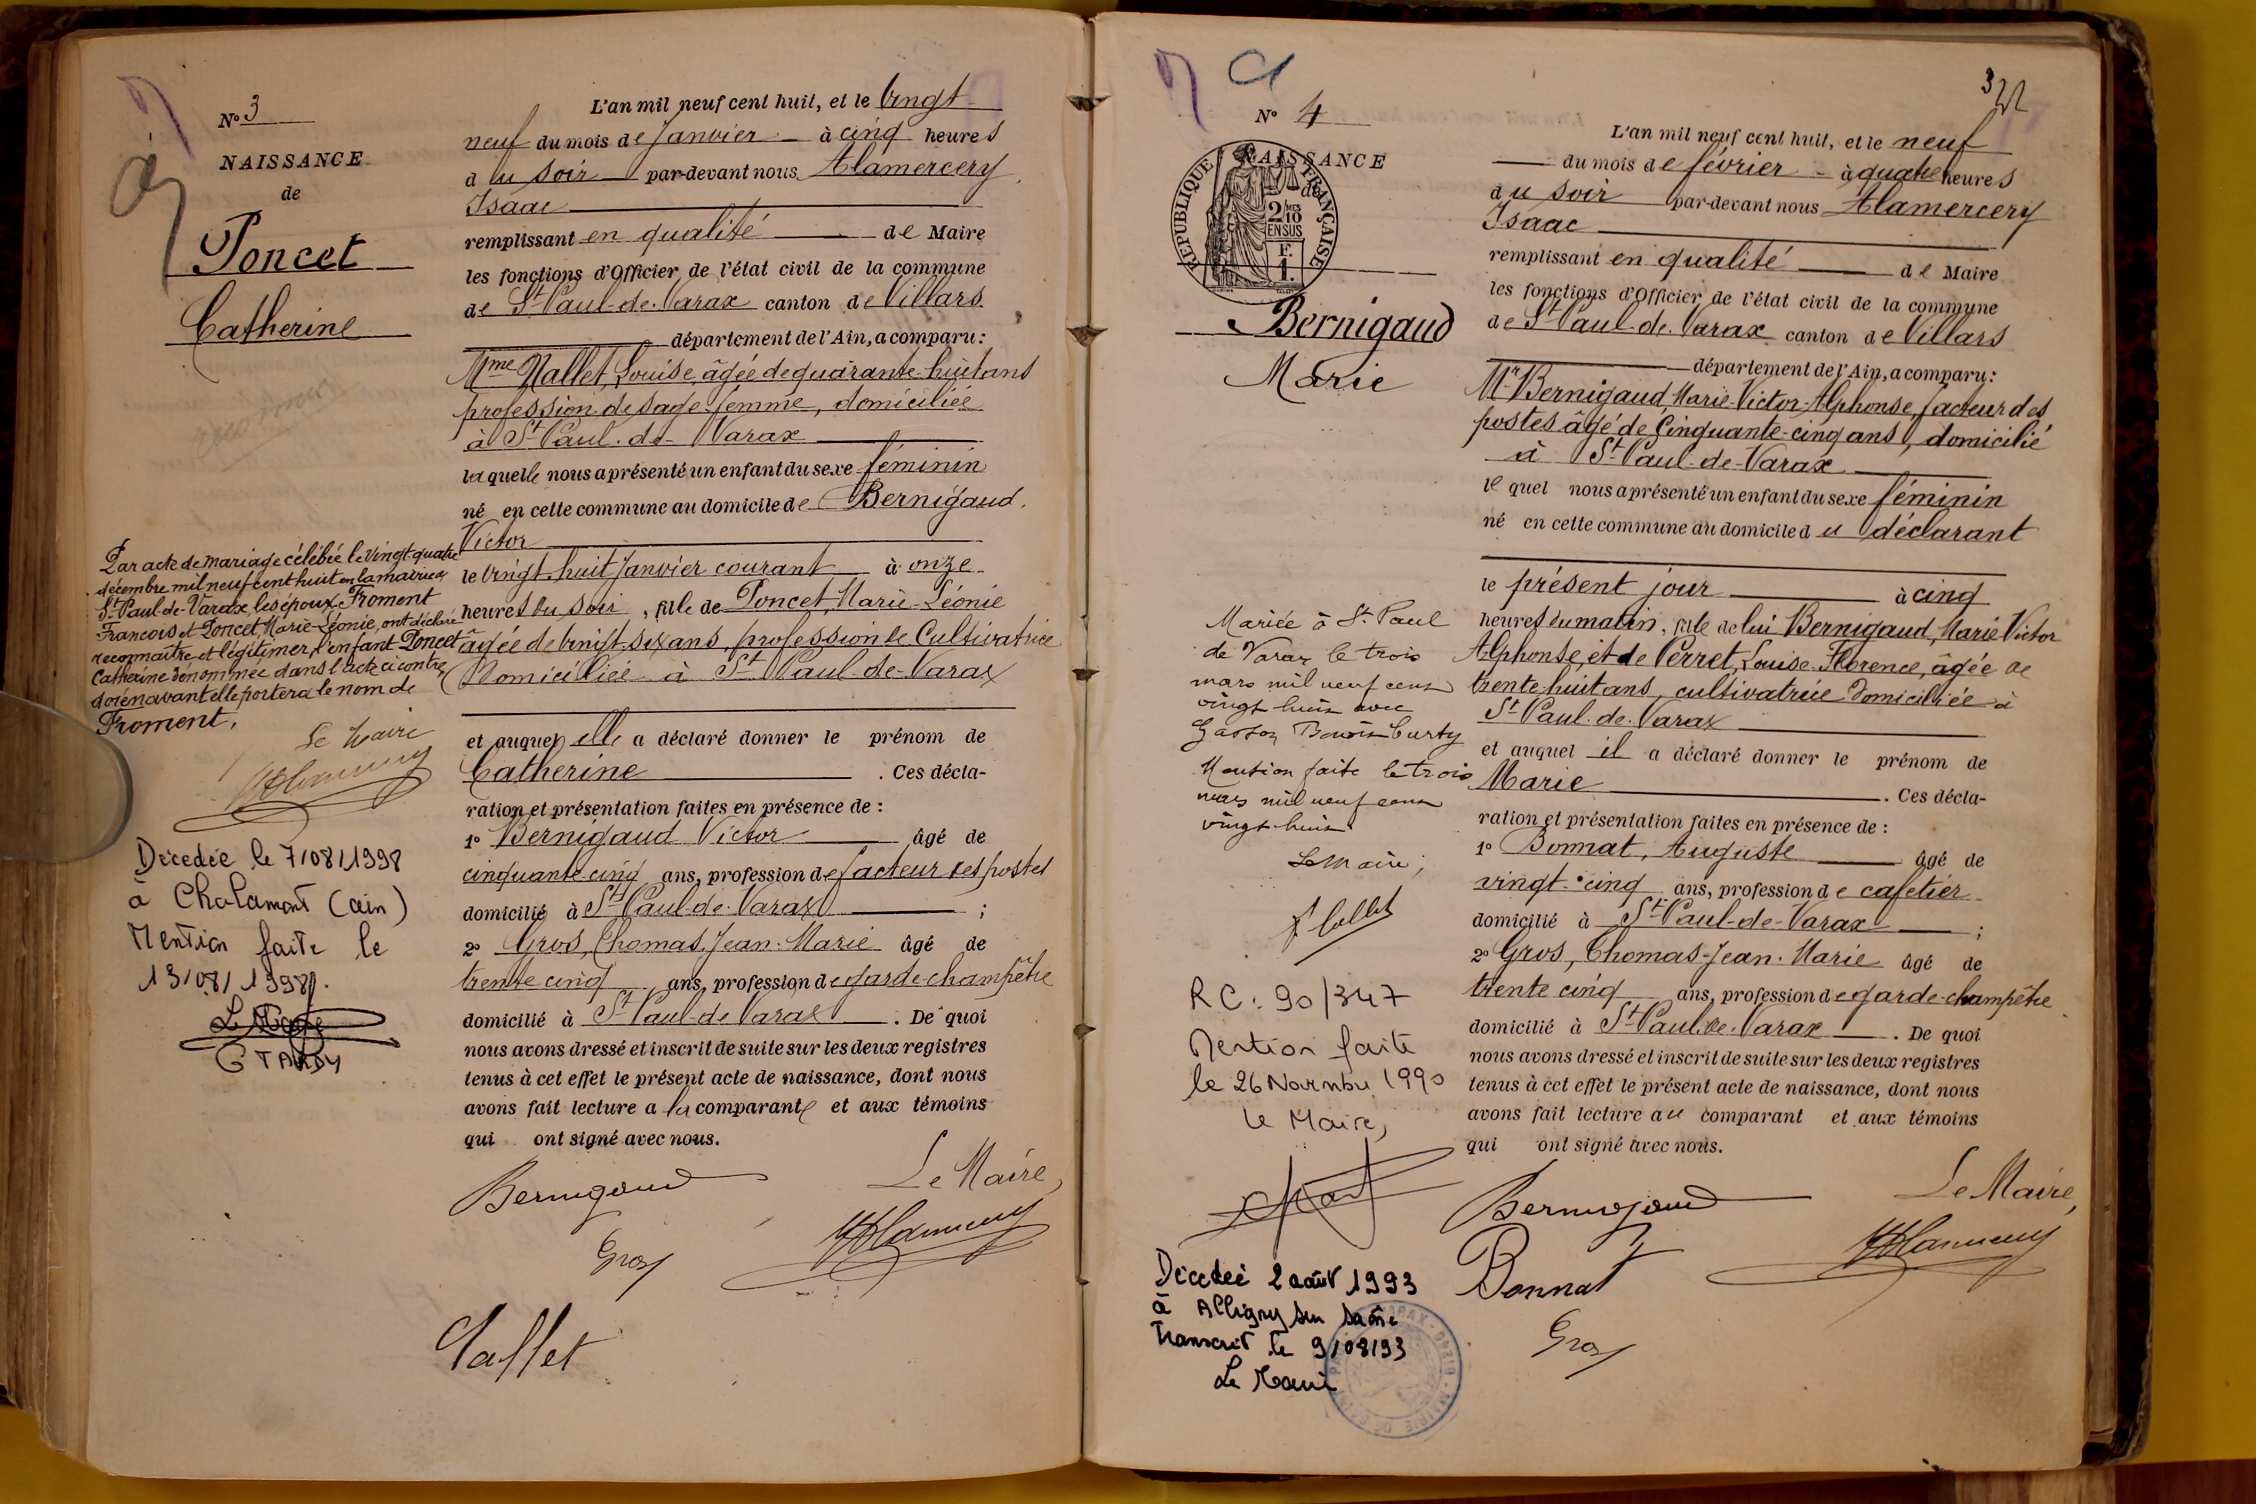 N° 3
NAISSANCE
de
Poncet
Catherine
L'an mil neuf cent huit, et le vingt
neuf du mois de Janvier à cinq heures
du soir par-devant nous Alamercery
Isaac
remplissant en qualité de Maire
les fonctions d'Officier de l'état civil de la commune
de St Paul-de-Varax canton de Villars
département de l'Ain, a comparu :
Mme Nallet, Louise, âgée de quarante-huit ans
profession de sage-femme, domiciliée
à St Paul-de-Varax
laquelle nous a présenté un enfant du sexe féminin
né en cette commune au domicile de Bernigaud
Victor
le vingt-huit Janvier courant à onze
heures du soir, fille de Poncet, Marie-Léonie
âgée de vingt-six ans, profession de Cultivatrice
Domiciliée à St Paul-de-Varax
et auquel elle a déclaré donner le prénom de
Catherine . Ces décla-
ration et présentation faites en présence de :
1° Bernigaud Victor âgé de
cinquante-cinq ans, profession de facteur des postes
domicilié à St Paul-de-Varax ;
2° Gros, Thomas, Jean-Marie âgé de
trente cinq ans, profession de garde-champêtre
domicilié à St Paul-de-Varax . De quoi
nous avons dressé et inscrit de suite sur les deux registres
tenus à cet effet le présent acte de naissance, dont nous
avons fait lecture a la comparante et aux témoins
qui ont signé avec nous.
Bernigaud
Le Maire,
Gros
Nallet
Par acte de mariage célébré le vingt-quatre
décembre mil neuf cent huit en la mairie de
St Paul-de-Varax les époux Froment
Francois et Poncet, Marie-Léonie, ont déclaré
reconnaître et légitimer l'enfant Poncet
Catherine dénommée dans l'acte ci contre,
dorénavant elle portera le nom de
Froment.
Le Maire
Décedée le 7/08/1998
à Chalamont (ain)
Mention faite le
13/08/1998.
Le Maire
G TARDY
322
N° 4
NAISSANCE
de
RÉPUBLIQUE FRANÇAISE
2/10 MES
EN SUS
F.
1.
Bernigaud
Marie
L'an mil neuf cent huit, et le neuf
du mois de février à quatre heures
du soir par-devant nous Alamercery
Isaac
remplissant en qualité de Maire
les fonctions d'Officier de l'état civil de la commune
de St Paul-de-Varax canton de Villars
département de l'Ain, a comparu :
Mr Bernigaud, Marie-Victor-Alphonse, facteur des
postes âgé de Cinquante-cinq ans, domicilié
à St Paul-de-Varax
lequel nous a présenté un enfant du sexe féminin
né en cette commune au domicile du déclarant
le présent jour à cinq
heures du matin, fille de lui Bernigaud, Marie Victor
Alphonse, et de Perret, Louise-Florence, âgée de
trente-huit ans, cultivatrice Domiciliée à
St Paul-de-Varax
et auquel il a déclaré donner le prénom de
Marie . Ces décla-
ration et présentation faites en présence de :
1° Bonnat, Auguste âgé de
vingt-cinq ans, profession de cafetier
domicilié à St Paul-de-Varax ;
2° Gros, Thomas-Jean-Marie âgé de
trente cinq ans, profession de garde-champêtre
domicilié à St Paul-de-Varax . De quoi
nous avons dressé et inscrit de suite sur les deux registres
tenus à cet effet le présent acte de naissance, dont nous
avons fait lecture au comparant et aux témoins
qui ont signé avec nous.
Bernigaud
Le Maire,
Bonnat
Gros
Mariée à St Paul
de Varax le trois
mars mil neuf cent
vingt huit avec
Gaston Benoît Curty
Mention faite le trois
mars mil neuf cent
vingt-huit
Le Maire,
RC : 90/347
Mention faite
le 26 Novembre 1990
Le Maire,
Décedée 2 août 1993
à Alligny sur Saône
Transcrit le 9/08/93
Le Maire